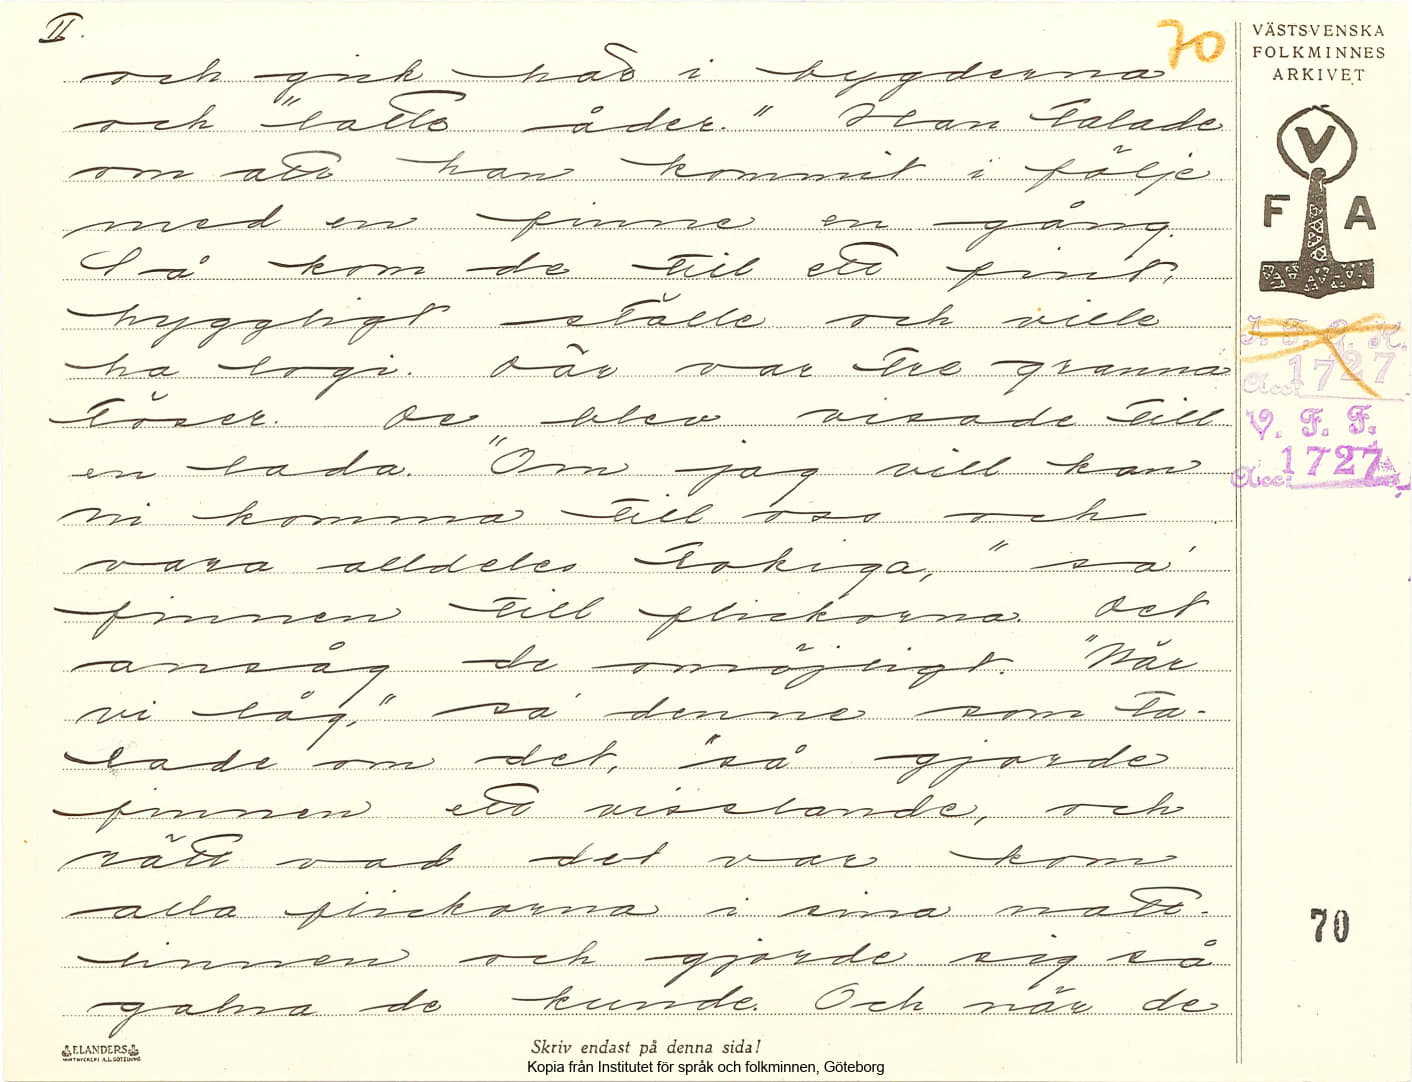 II.
70
VÄSTSVENSKA
FOLKMINNES
ARKIVET
och gick här i bygderna
och "latte åder." Han talade
om att han kommit i följe
med en finne en gång.
Så kom de till ett fint,
hyggligt ställe och ville
ha logi. Där var tre granna
töser. De blev visade till
en lada. "Om jag vill kan
ni komma till oss och
vara alldeles tokiga," sa
finnen till flickorna. Det
ansåg de omöjligt. "När
vi låg," sa denne som ta-
lade om det, "så gjorde
finnen ett visslande, och
rätt vad det var kom
alla flickorna i sina natt-
linnen och gjorde sig så
galna de kunde. Och när de
V
F A
I. F. G. H.
Acc: 1727
V. F. F.
Acc: 1727
70
ELANDERS
Skriv endast på denna sida!
Kopia från Institutet för språk och folkminnen, Göteborg